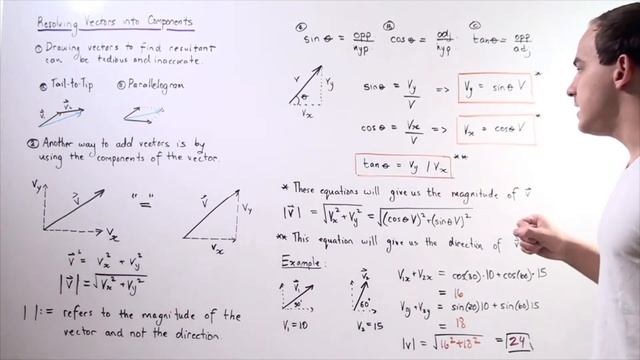 Resolving Vectors into Components
① Drawing vectors to find resultant
can be tedious and inaccurate.
Ⓐ Tail-to-Tip
Ⓑ Parallelogram
V₁
V₂
② Another way to add vectors is by
using the components of the vector.
Vy
V
Vx
"="
V
Vy
Vx
V² = Vx² + Vy²
|V| = √Vx² + Vy²
| | := refers to the magnitude of the
vector and not the direction.
Ⓐ sinθ = opp/hyp
Ⓑ cosθ = adj/hyp
Ⓒ tanθ = opp/adj
V
Vy
θ
Vx
sinθ = Vy/V => Vy = sinθ V *
cosθ = Vx/V => Vx = cosθ V *
tanθ = Vy / Vx **
* These equations will give us the magnitude of V
|V| = √Vx² + Vy² = √(cosθV)² + (sinθV)²
** This equation will give us the direction of V
Example:
V₁
30°
V₁ = 10
V₂
60°
V₂ = 15
V1x + V2x = cos(30)·10 + cos(60)·15
= 16
V1y + V2y = sin(30)10 + sin(60)15
= 18
|V| = √16² + 18² = 24